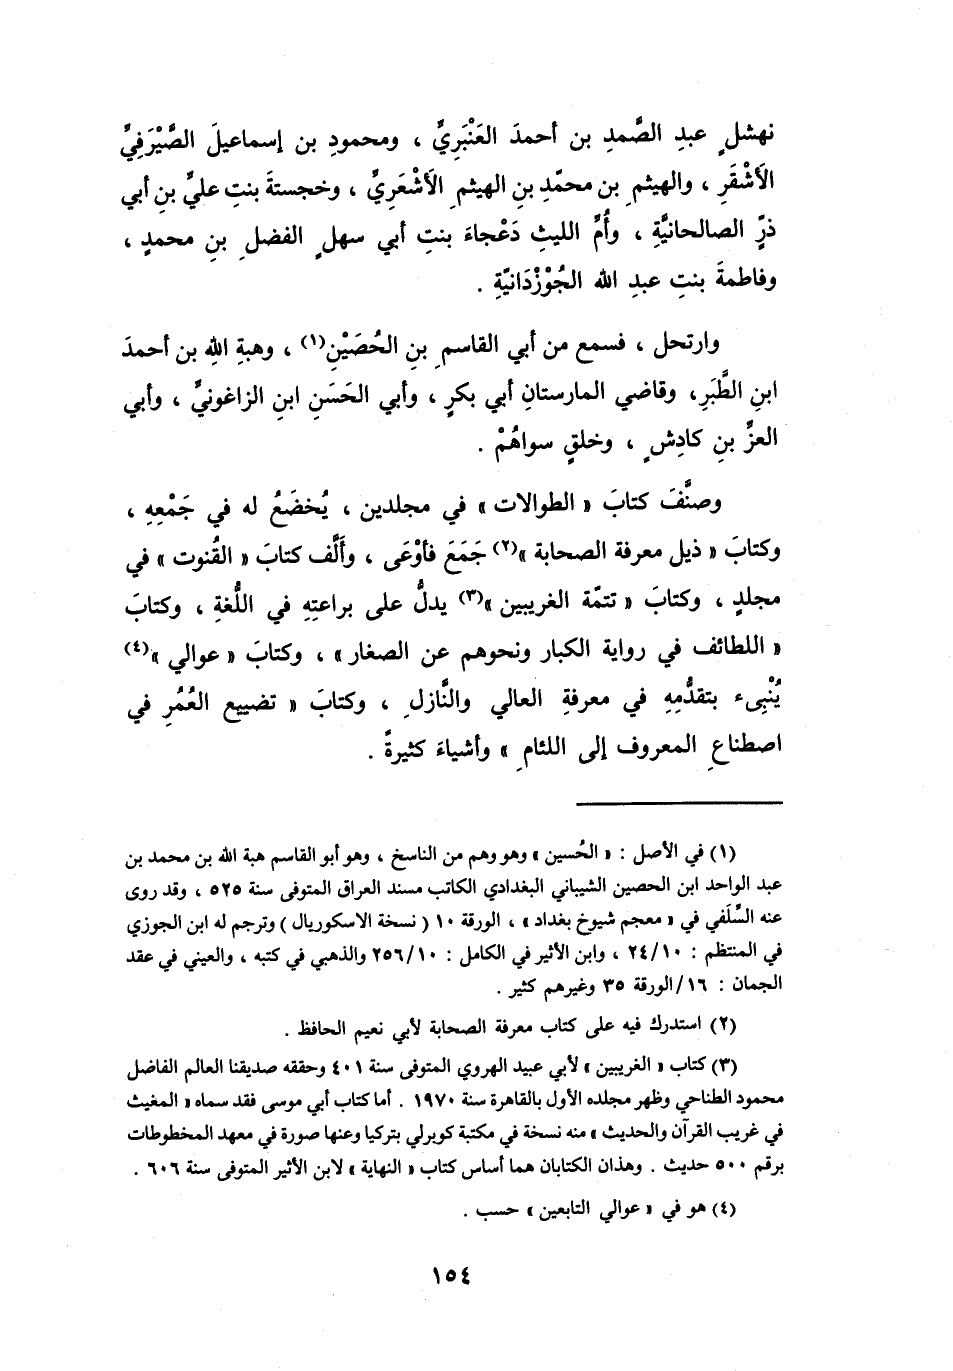 نهشلٍ عبدِ الصَّمدِ بن أحمدَ العَنْبَرِيِّ ، ومحمودِ بن إسماعيلَ الصَّيْرَفِيِّ
الأَشْقَرِ ، والهيثمِ بن محمّدِ بنِ الهيثمِ الأَشْعَرِيِّ ، وخجستةَ بنتِ عليِّ بنِ أبي
ذرٍّ الصالحانيَّةِ ، وأُمِّ الليثِ دَعْجاءَ بنتِ أبي سهلٍ الفضلِ بنِ محمدٍ ،
وفاطمةَ بنتِ عبدِ الله الجُوْزْدَانيّةِ .
وارتحل ، فسمع من أبي القاسمِ بنِ الحُصَيْنِ(١) ، وهبةِ اللهِ بن أحمدَ
ابنِ الطَّبَرِ، وقاضي المارستانِ أبي بكرٍ ، وأبي الحَسَنِ ابنِ الزاغونيِّ ، وأبي
العزِّ بنِ كادِشٍ ، وخلقٍ سواهُمْ .
وصنَّفَ كتابَ « الطوالات » في مجلدين ، يُخضَعُ له في جَمْعِهِ ،
وكتابَ « ذيل معرفة الصحابة »(٢) جَمَعَ فأوْعَى ، وأَلَّف كتابَ « القُنوت » في
مجلدٍ ، وكتابَ « تتمّة الغريبين »(٣) يدلُّ على براعتِهِ في اللُّغةِ ، وكتابَ
« اللطائف في رواية الكبار ونحوهم عن الصغار » ، وكتابَ « عوالي »(٤)
يُنْبِىء بتقدُّمِهِ في معرفةِ العالي والنَّازلِ ، وكتابَ « تضييع العُمُرِ في
اصطناعِ المعروف إلى اللئامِ » وأشياءَ كثيرةً .
(١) في الأصل : « الحُسين » وهو وهم من الناسخ ، وهو أبو القاسم هبة الله بن محمد بن
عبد الواحد ابن الحصين الشيباني البغدادي الكاتب مسند العراق المتوفى سنة ٥٢٥ ، وقد روى
عنه السِّلَفي في « معجم شيوخ بغداد » ، الورقة ١٠ ( نسخة الاسكوريال ) وترجم له ابن الجوزي
في المنتظم : ٢٤/١٠ ، وابن الأثير في الكامل : ٢٥٦/١٠ والذهبي في كتبه ، والعيني في عقد
الجمان : ١٦/الورقة ٣٥ وغيرهم كثير .
(٢) استدرك فيه على كتاب معرفة الصحابة لأبي نعيم الحافظ .
(٣) كتاب « الغريبين » لأبي عبيد الهروي المتوفى سنة ٤٠١ وحققه صديقنا العالم الفاضل
محمود الطناحي وظهر مجلده الأول بالقاهرة سنة ١٩٧٠ . أما كتاب أبي موسى فقد سماه « المغيث
في غريب القرآن والحديث » منه نسخة في مكتبة كوبرلي بتركيا وعنها صورة في معهد المخطوطات
برقم ٥٠٠ حديث . وهذان الكتابان هما أساس كتاب « النهاية » لابن الأثير المتوفى سنة ٦٠٦ .
(٤) هو في « عوالي التابعين » حسب .
١٥٤